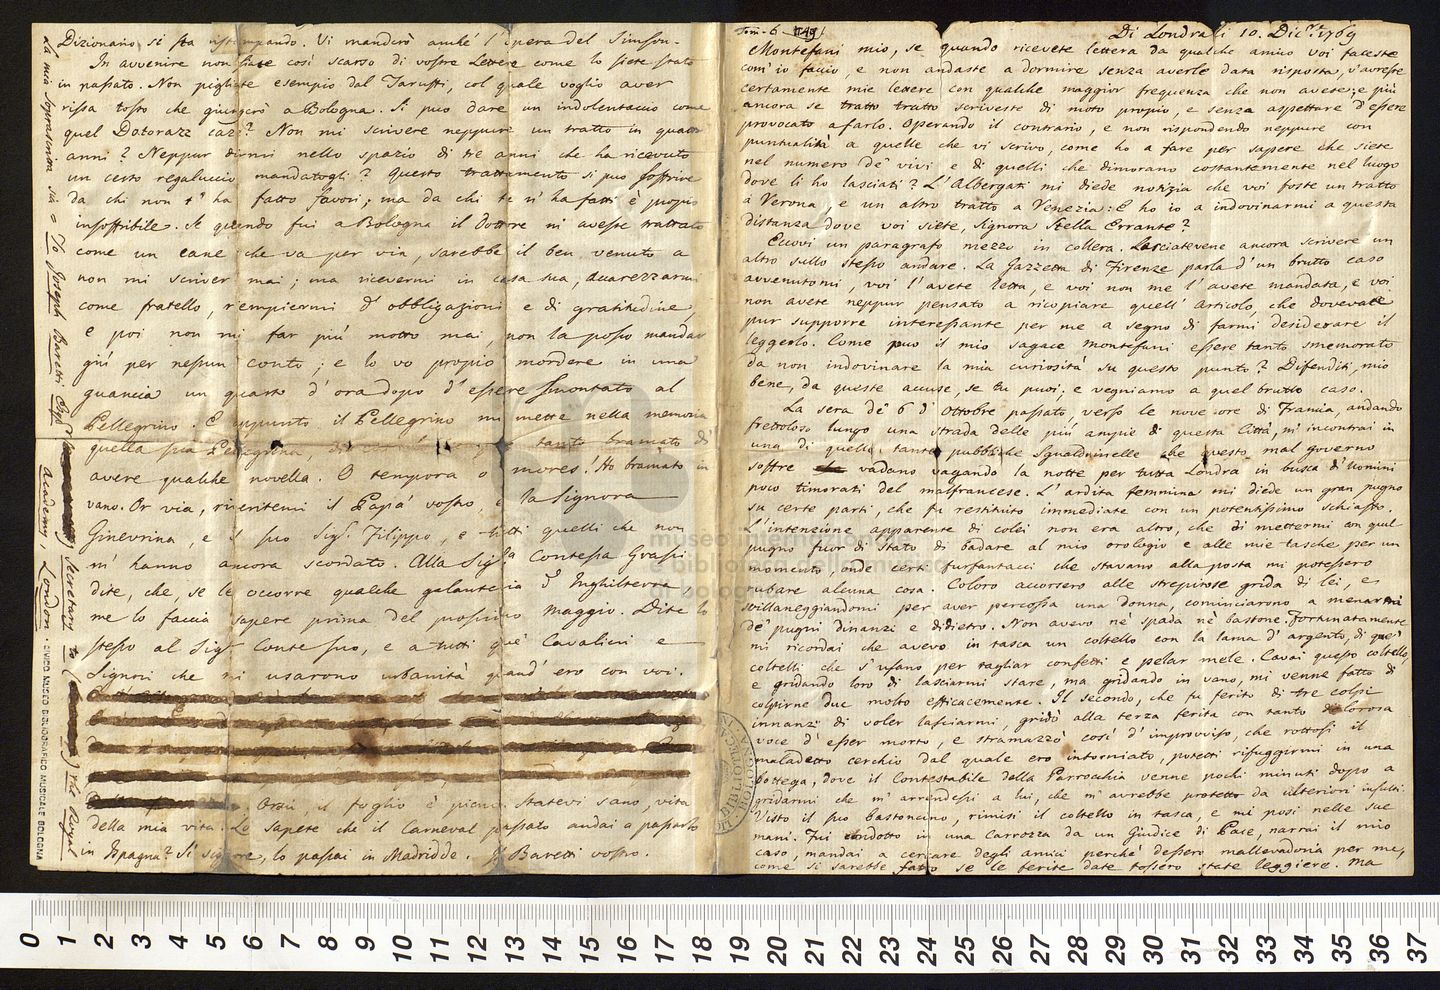 Di Londra li 10. Dic.re 1769
Montefani mio, se quando ricevete lettera da qualche amico voi faceste
com'io faccio, e non andaste a dormire senza averle data risposta, v'avreste
certamente mie lettere con qualche maggior frequenza che non avete; e più
ancora se tratto tratto scriveste di moto proprio, e senza aspettare d'essere
provocato a farlo. Operando il contrario, e non rispondendo neppure con
puntualità a quelle che vi scrivo, come ho a fare per sapere che siete
nel numero de' vivi e di quelli che dimorano costantemente nel luogo
dove li ho lasciati? L'Albergati mi diede notizia che voi foste un tratto
a Verona, e un altro tratto a Venezia: E ho io a indovinarmi a questa
distanza dove voi siete, Signora Stella Errante?
Eccovi un paragrafo mezzo in collera. Lasciatevene ancora scrivere un
altro sullo stesso andare. La Gazzetta di Firenze parla d'un brutto caso
avvenutomi, voi l'avete letta, e voi non me l'avete mandata, e voi
non avete neppur pensato a ricopiare quell'Articolo, che dovevate
pur supporre interessante per me a segno di farmi desiderare il
leggerlo. Come può il mio sagace Montefani essere tanto smemorato
da non indovinare la mia curiosità su questo punto? Diffenditi, mio
bene, da queste accuse, se tu puoi; e vegniamo a quel brutto caso.
La sera de' 6 d'Ottobre passato, verso le nove ore di Francia, andando
frettoloso lungo una strada delle più ampie di questa Città, m'incontrai in
una di quelle tante pubbliche Sgualdrinelle che questo mal governo
soffre vadano vagando la notte per tutta Londra in busca d'Uomini
poco timorati del malfrancese. L'ardita femmina mi diede un gran pugno
su certe parti, che fu restituito immediate con un potentissimo schiaffo.
L'intenzione apparente di colei non era altro, che di mettermi con quel
pugno fuor di stato di badare al mio orologio e alle mie tasche per un
momento, onde certi furfantacci che stavano alla posta mi potessero
rubare alcuna cosa. Coloro accorsero alle strepitose grida di lei, e
svillaneggiandomi per aver percossa una donna, cominciarono a menarmi
de' pugni dinanzi e didietro. Non avevo nè spada nè bastone. Fortunatamente
mi ricordai che avevo in tasca un coltello con la lama d'argento, di que'
coltelli che s'usano per tagliar confetti e pelar mele. Cavai questo coltello,
e gridando loro di lasciarmi stare, ma gridando in vano, mi venne fatto di
colpirne due molto efficacemente. Il secondo, che fu ferito di tre colpi
innanzi di voler lasciarmi, gridò alla terza ferita con tanto dolorosa
voce d'esser morto, e stramazzò così d'improvviso, che rottosi il
maladetto cerchio dal quale ero intorniato, potetti rifuggirmi in una
bottega, dove il Contestabile della Parrocchia venne pochi minuti dopo a
gridarmi che m'arrendessi a lui, che m'avrebbe protetto da ulteriori insulti.
Visto il suo bastoncino, rimisi il coltello in tasca, e mi posi nelle sue
mani. Fui condotto in una Carrozza da un Giudice di Pace, narrai il mio
caso, mandai a cercare degli amici perchè dessero mallevadoria per me,
come si sarebbe fatto se le ferite date fossero state leggiere. Ma
Dizionario si sta ristampando. Vi manderò anche l'opera del Simson.
In avvenire non siate così scarso di vostre Lettere come lo siete stato
in passato. Non pigliate esempio dal Taruffi, col quale voglio aver
rissa tosto che giungerò a Bologna. Si può dare un indolentaccio come
quel Dotorazz caz:? Non mi scrivere neppure un tratto in quattr
anni? Neppur dirmi nello spazio di tre anni che ha ricevuto
un certo regaluccio mandatogli? Questo trattamento si può soffrire
da chi non t'ha fatto favori; ma da chi te n'ha fatti è proprio
insoffribile. Se quando fui a Bologna il Dottore m'avesse trattato
come un cane che va per via, sarebbe il ben venuto a
non mi scriver mai; ma ricevermi in casa sua, accarezzarmi
come fratello, riempiermi d'obbligazioni e di gratitudine,
e poi non mi far più motto mai, non la posso mandar
giù per nessun conto; e lo vo proprio mordere in una
guancia un quarto d'ora dopo d'essere smontato al
Pellegrino. E appunto il Pellegrino mi mette nella memoria
quella sua Pellegrina, di tanto bramato d'
avere qualche novella. O tempora o mores! Ho bramato in
vano. Or via, riveritemi il Papà vostro, e la Signora
Ginevrina, e il suo Sig.r Filippo, e tutti quelli che non
m'hanno ancora scordato. Alla Sig.ra Contessa Grassi
dite, che, se le occorre qualche galanteria d'Inghilterra
me lo faccia sapere prima del prossimo Maggio. Dite lo
stesso al Sig.r Conte suo, e a tutti que' Cavalieri e
Signori che mi usarono urbanità quand'ero con voi.
Orsù, il foglio è pieno. Statevi sano, vita
della mia vita. Lo sapete che il Carneval passato andai a passarlo
in Ispagna? Sì signore, lo passai in Madridde. Il Baretti vostro.
La mia soprascritta sia = To Joseph Baretti Esq.r
Secretary to the Royal
Academy, London.
CIVICO MUSEO BIBLIOGRAFICO MUSICALE BOLOGNA
museo internazionale
e biblioteca della musica
di bologna
0 1 2 3 4 5 6 7 8 9 10 11 12 13 14 15 16 17 18 19 20 21 22 23 24 25 26 27 28 29 30 31 32 33 34 35 36 37